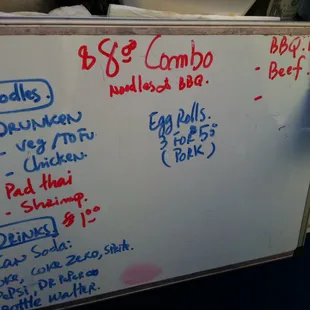 $8.00 Combo
Noodles & BBQ.
BBQ.
- Beef.
-
oodles.
DRUNKEN
- Veg/TOFU
- Chicken.
Pad thai
- Shrimp. $1.00
Egg Rolls.
3 FOR 5.00
(PORK)
DRINKS
Can Soda:
oke, Coke Zero, Sprite.
Pepsi, DR Peper
Bottle watter.